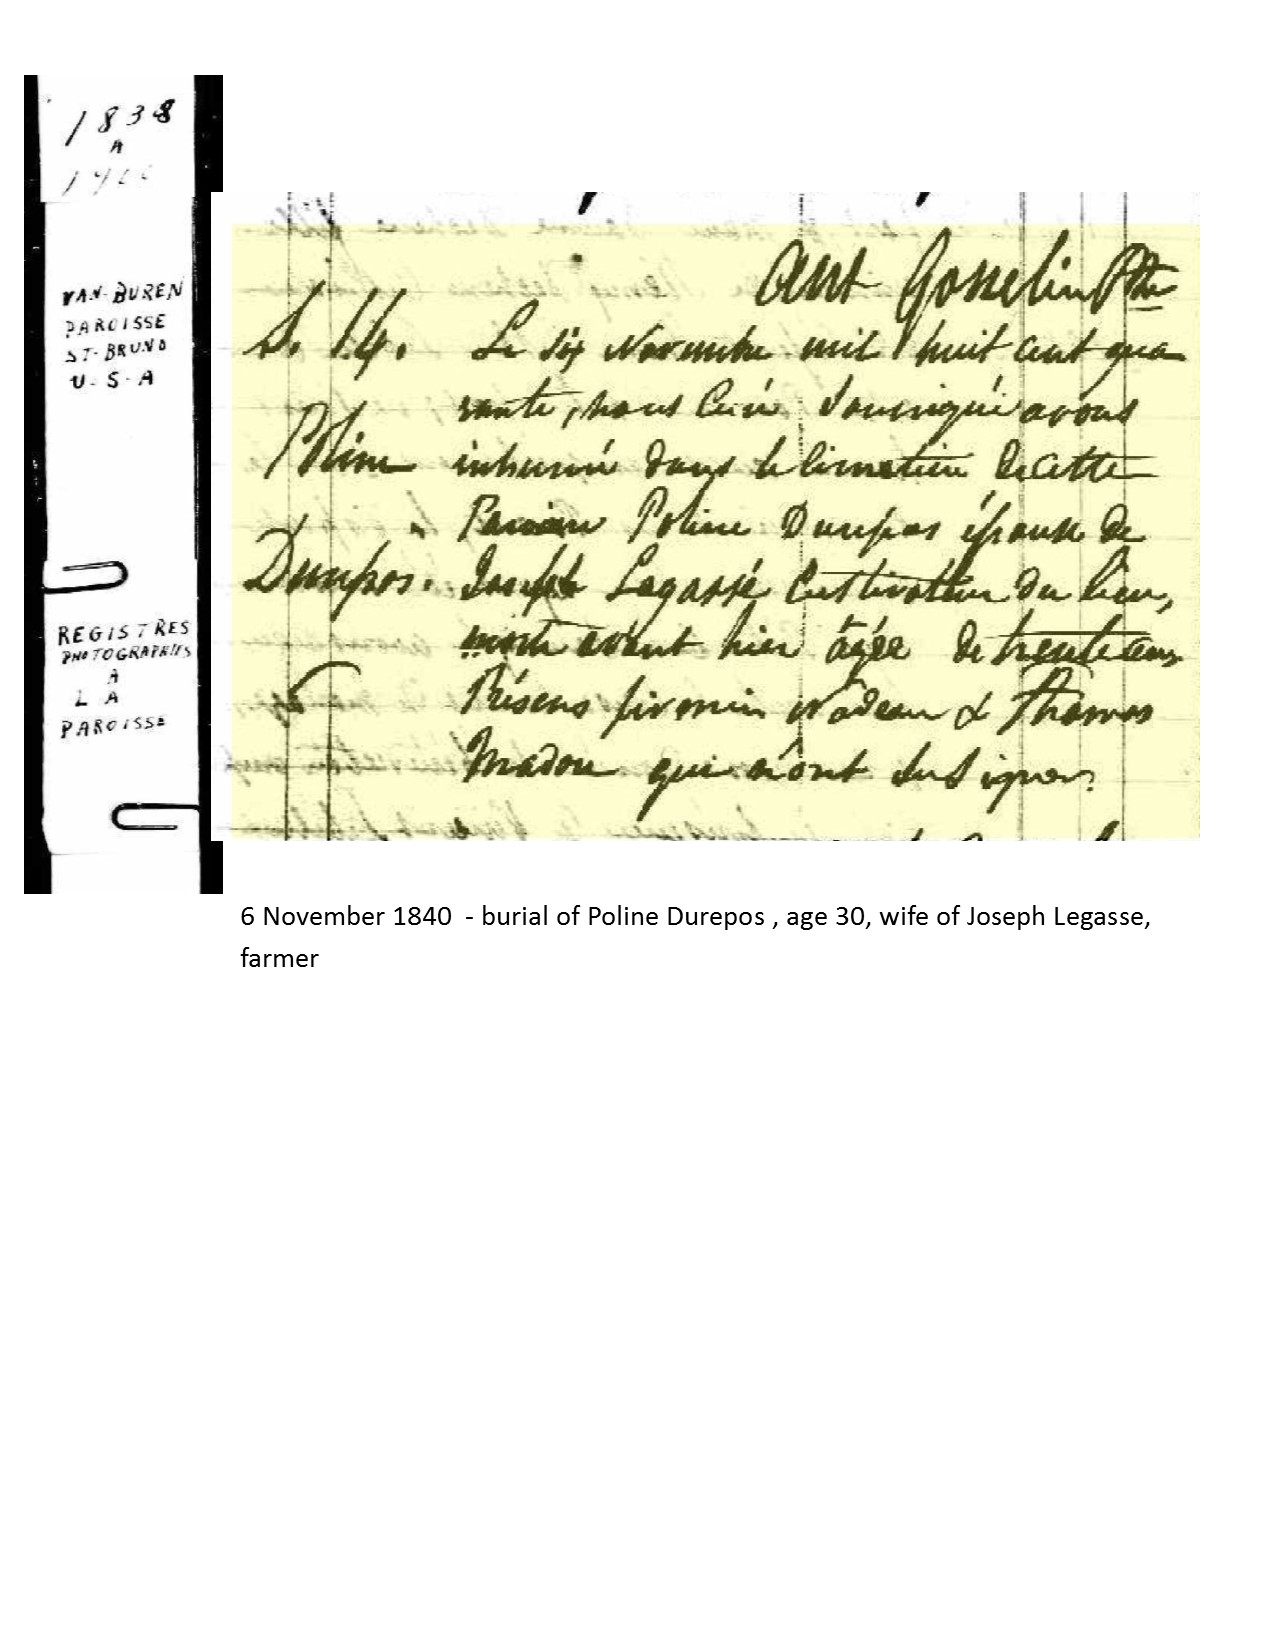 1838
A
1900
VAN-BUREN
PAROISSE
ST-BRUNO
U-S-A
REGISTRES
PHOTOGRAPHIES
A
LA
PAROISSE
Ant Gosselin Ptre
S. 14.
Poline
Durepos.
Le six Novembre mil huit cent qua
rante, nous Curé soussigné avons
inhumé dans le cimetière de cette
Paroisse Poline Durepos épouse de
Joseph Legassé Cultivateur du lieu,
morte avant hier âgée de trente ans
Présens firmin Nadeau & Thomas
Madou qui n'ont su signer.
6 November 1840 - burial of Poline Durepos , age 30, wife of Joseph Legasse,
farmer